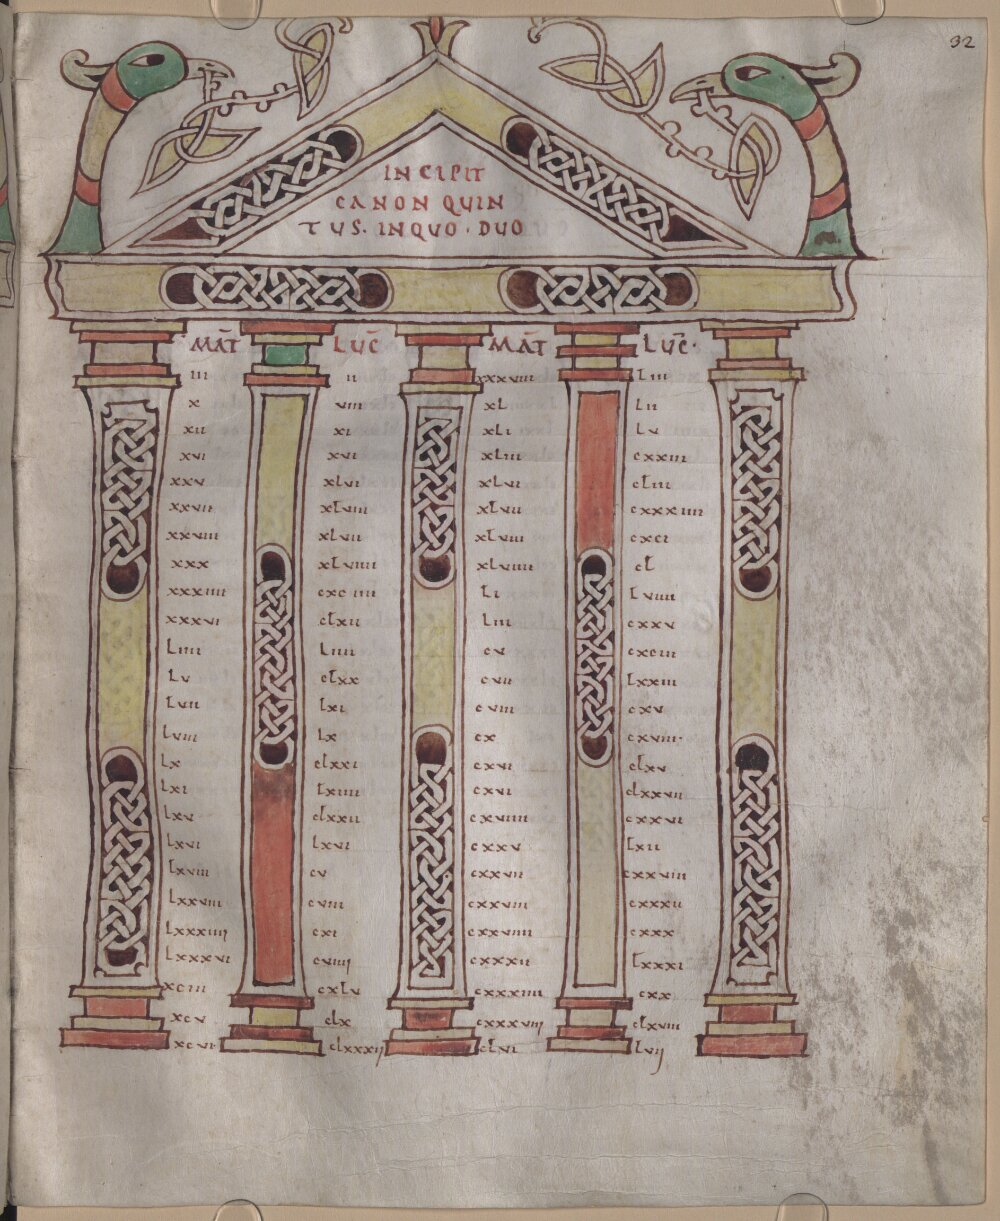 32
INCIPIT
CANON QUIN
TUS. INQUO · DUO
MAT̄ LUC̄ MAT̄ LUC̄·
iii ii xxxviiii Liii
x viii xL Lii
xii xi xLi Lv
xvi xvi xLiii cxxiii
xxv xLvi xLvi cLiii
xxvii xLviii xLvii cxxxiiii
xxviii xLvii xLviii cxci
xxx xLviiii xLviiii cL
xxxiiii cxciiii Li Lviiii
xxxvi cLxii Liii cxxv
Liiii Liiii cv cxciii
Lv cLxx cvii Lxxiii
Lvii Lxi cviii cxv
Lviii Lx cx cxviii·
Lx cLxxi cxvi cLxv
Lxi Lxiiii cxvi cLxxvii
Lxv cLxxii cxviiii cxxvi
Lxvi Lxvi cxxv Lxii
Lxviii cv cxxvii cxxviii
Lxxviii cviii cxxviii cxxxii
Lxxxiiii cxi cxxviiii cxxx
Lxxxvi cviiij cxxxii Lxxxi
xciii cxLv cxxxiiii cxx
xcv cLx cxxxviij cLxviii
xcvi cLxxxij cLvi Lvij